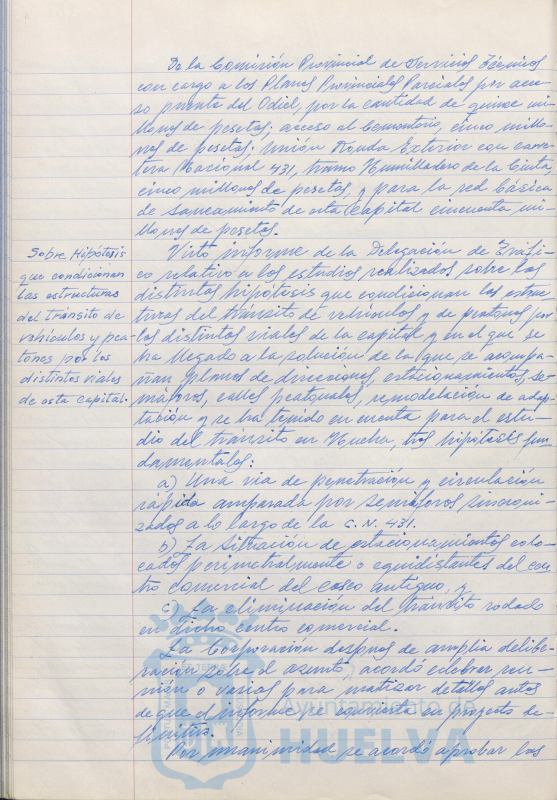 De la Comisión Provincial de Servicios Técnicos
con cargo a los Planes Provinciales Parciales por acce-
so puente del Odiel, por la cantidad de quince mi-
llones de pesetas; acceso al Cementerio, cinco millo-
nes de pesetas; unión Ronda Exterior con carre-
tera Nacional 431, tramo Humilladero de la Cinta,
cinco millones de pesetas, y para la red básica
de saneamiento de esta Capital cincuenta mi-
llones de pesetas.
Sobre Hipótesis
que condicionan
las estructuras
del tránsito de
vehículos y pea-
tones por los
distintos viales
de esta capital.
Visto informe de la Delegación de Tráfi-
co relativo a los estudios realizados sobre las
distintas hipótesis que condicionan las estruc-
turas del tránsito de vehículos y de peatones por
los distintos viales de la capital y en el que se
ha llegado a la solución de la que se acompa-
ñan planos de direcciones, estacionamientos, se-
máforos, calles peatonales, remodelación de adap-
tación y se ha tenido en cuenta para el estu-
dio del tránsito en Huelva, tres hipótesis fun-
damentales:
a) Una via de penetración y circulación
rápida amparada por semáforos sincroni-
zados a lo largo de la C.N. 431.
b) La situación de estacionamientos colo-
cados perimetralmente o equidistantes del cen-
tro comercial del casco antiguo, y
c) La eliminación del tránsito rodado
en dicho centro comercial.
La Corporación después de amplia delibe-
ración sobre el asunto, acordó celebrar reu-
nión o varias para matizar detalles antes
de que el informe se convierta en proyecto de-
finitivo.
Por unanimidad se acordó aprobar las
Ayuntamiento de
HUELVA